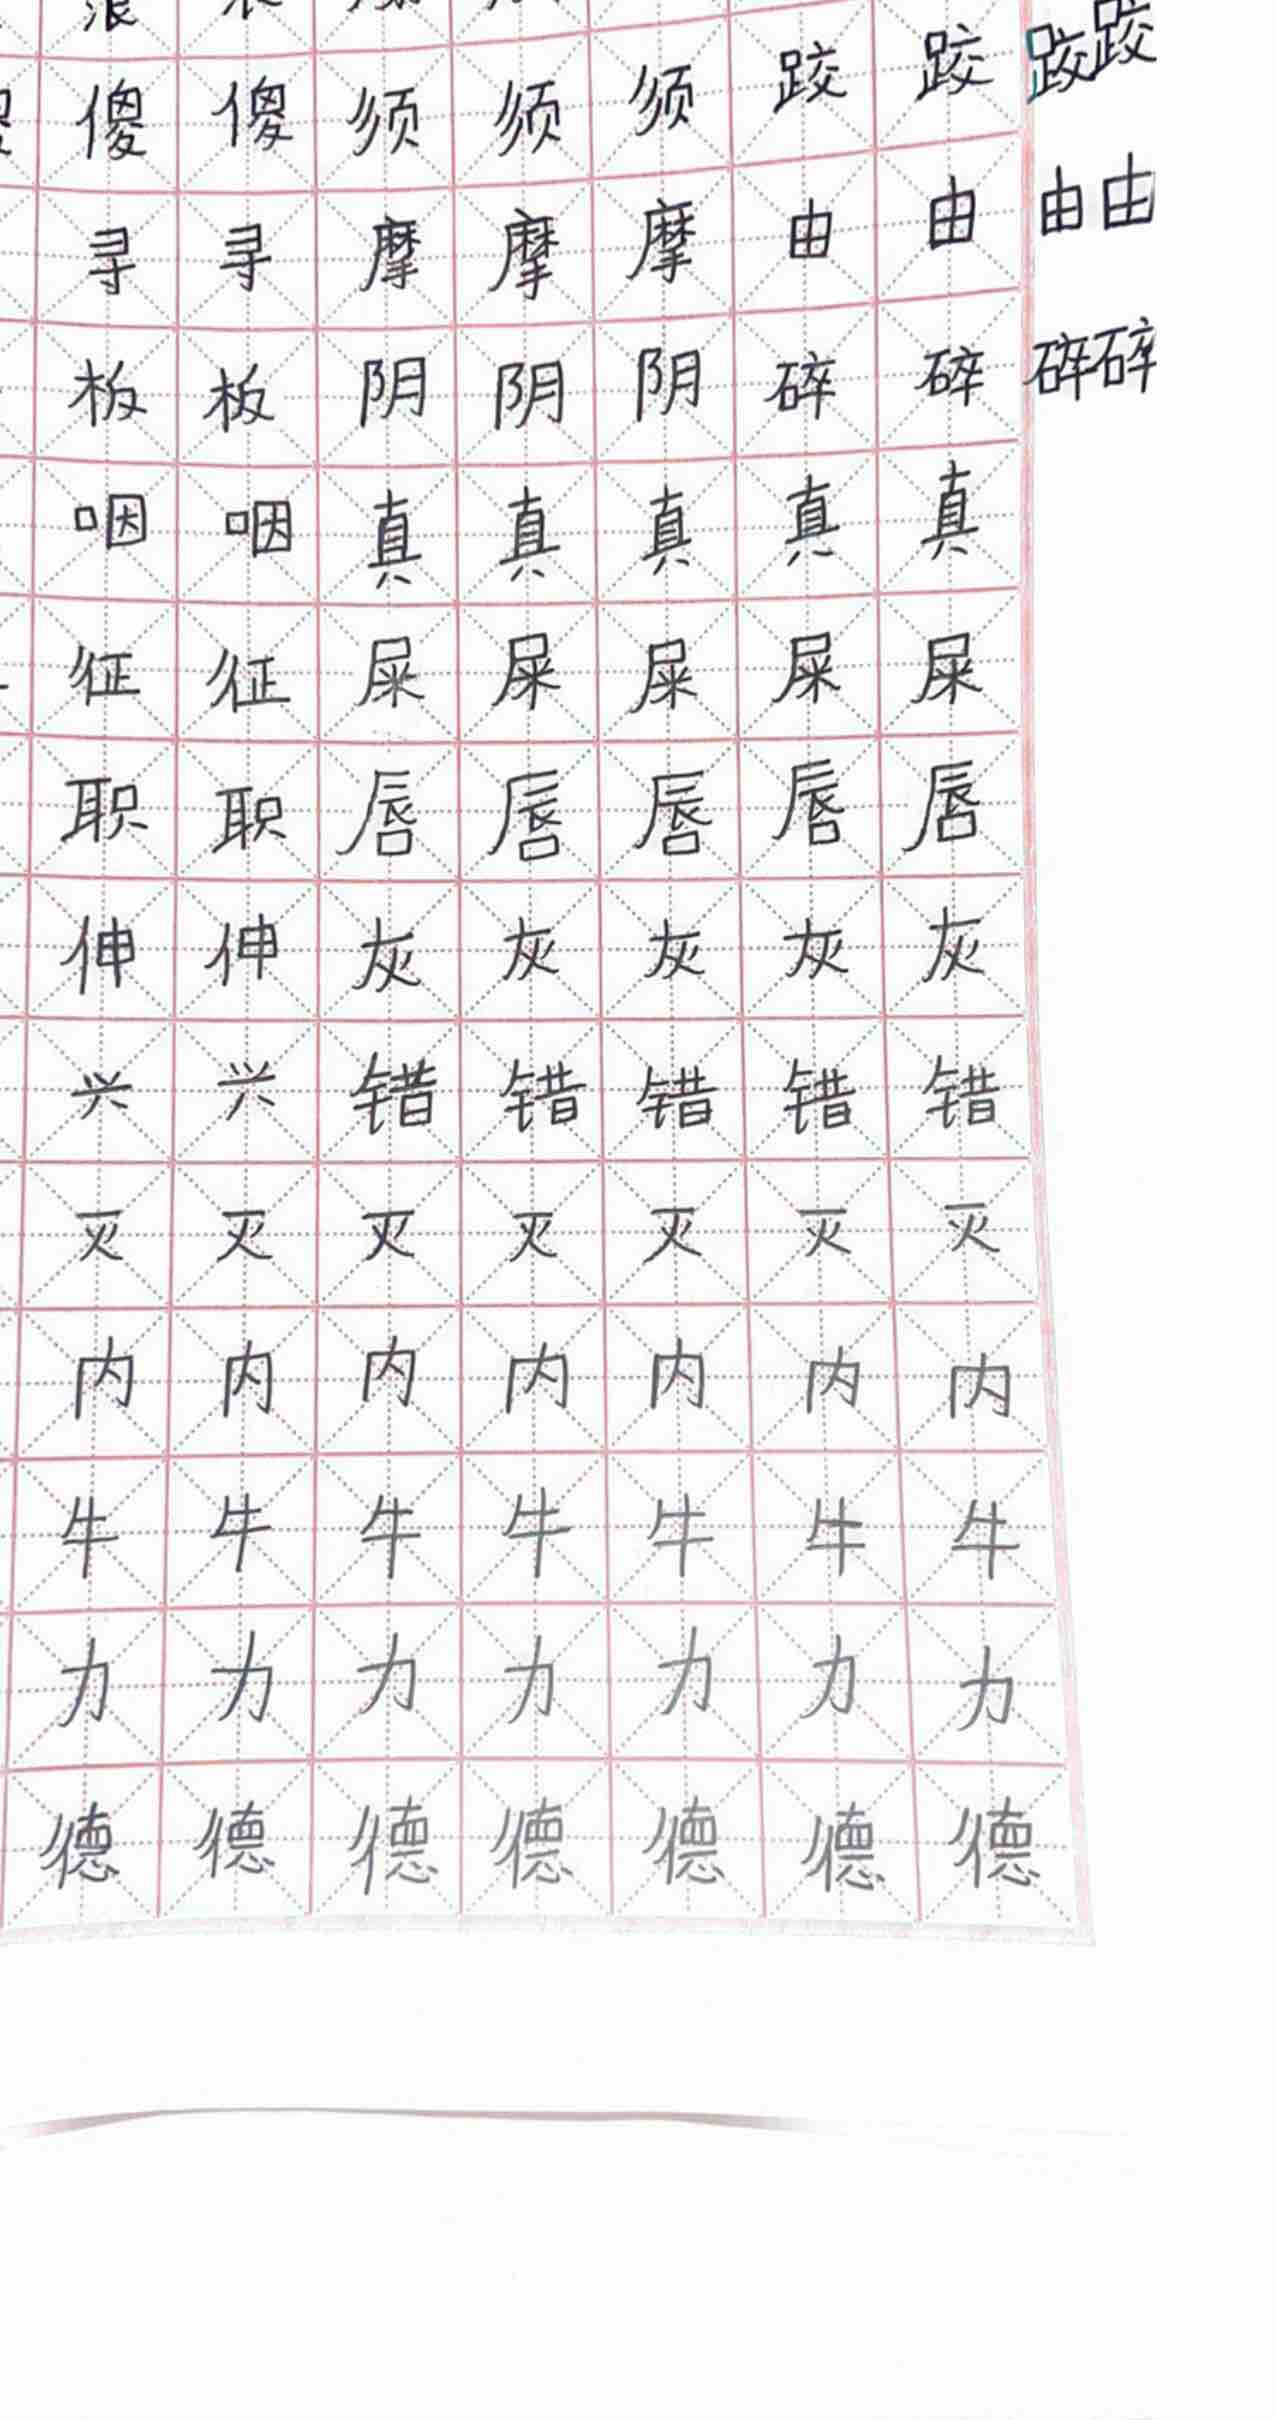 傻傻须须须跤跤跤跤
寻寻摩摩摩由由由由
板板阴阴阴碎碎碎碎
咽咽真真真真真
征征屎屎屎屎屎
职职唇唇唇唇唇
伸伸灰灰灰灰灰
兴兴错错错错错
灭灭灭灭灭灭灭
内内内内内内内
牛牛牛牛牛牛牛
力力力力力力力
德德德德德德德